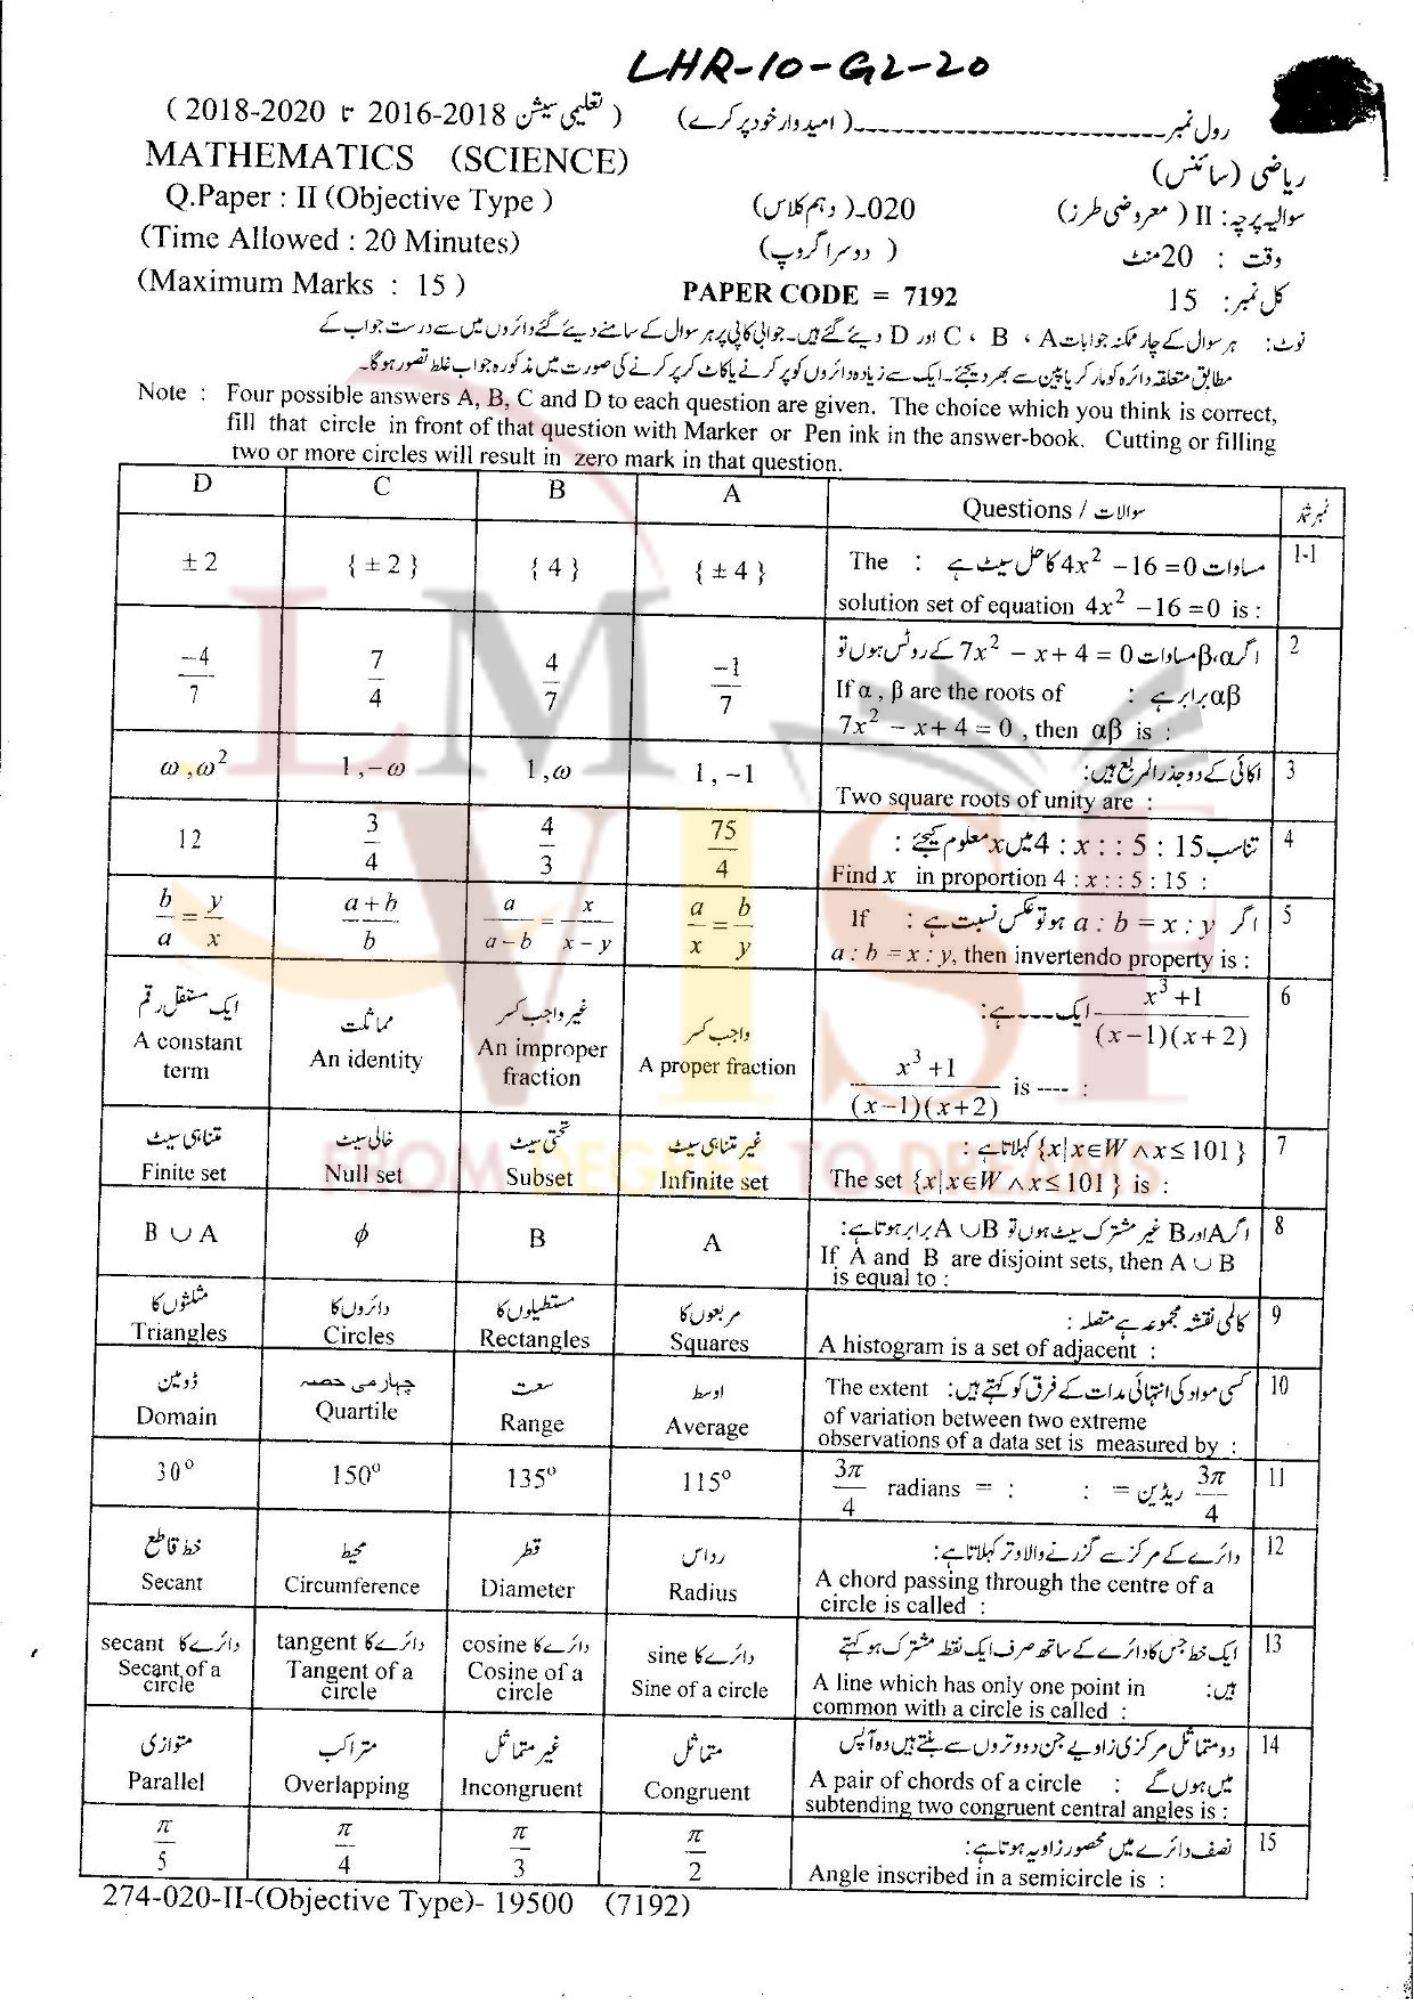 LHR-10-G2-20
رول نمبر ـــــــــــــــ (امیدوار خود پر کرے) ( تعلیمی سیشن 2018-2016 تا 2020-2018 )
MATHEMATICS (SCIENCE) ریاضی (سائنس)
Q.Paper : II (Objective Type ) 020ـ(دہم کلاس) سوالیہ پرچہ: II ( معروضی طرز)
(Time Allowed : 20 Minutes) ( دوسرا گروپ) وقت : 20 منٹ
(Maximum Marks : 15 ) PAPER CODE = 7192 کل نمبر: 15
نوٹ: ہر سوال کے چار ممکنہ جوابات A ، B ، C اور D دیئے گئے ہیں۔ جوابی کاپی پر ہر سوال کے سامنے دیئے گئے دائروں میں سے درست جواب کے
مطابق متعلقہ دائرہ کو مارکر یا پین سے بھر دیجئے۔ ایک سے زیادہ دائروں کو پر کرنے یا کاٹ کر پر کرنے کی صورت میں مذکورہ جواب غلط تصور ہوگا۔
Note : Four possible answers A, B, C and D to each question are given. The choice which you think is correct,
fill that circle in front of that question with Marker or Pen ink in the answer-book. Cutting or filling
two or more circles will result in zero mark in that question.
D C B A Questions / سوالات نمبر شمار
±2 {±2} {4} {±4} The : مساوات 4x² −16=0 کا حل سیٹ ہے 1-1
solution set of equation 4x² −16=0 is :
−4/7 7/4 4/7 −1/7 اگر α،β مساوات 7x² − x+4 = 0 کے روٹس ہوں تو 2
If α , β are the roots of : αβ برابر ہے
7x² − x+4 = 0 , then αβ is :
ω ,ω² 1 ,−ω 1 ,ω 1 , −1 اکائی کے دو جذرالمربع ہیں: 3
Two square roots of unity are :
12 3/4 4/3 75/4 تناسب 4 : x : : 5 : 15 میں x معلوم کیجئے : 4
Find x in proportion 4 : x : : 5 : 15 :
b/a = y/x a+b/b a/a−b = x/x−y a/x = b/y If : اگر a : b = x : y ہو تو عکس نسبت ہے 5
a : b = x : y, then invertendo property is :
ایک مستقل رقم مماثلت غیر واجب کسر واجب کسر x³+1/(x−1)(x+2) ایک ـــــ ہے: 6
A constant term An identity An improper fraction A proper fraction x³+1/(x−1)(x+2) is ---- :
متناہی سیٹ خالی سیٹ تحتی سیٹ غیر متناہی سیٹ {x|x∈W ∧x≤101} کہلاتا ہے : 7
Finite set Null set Subset Infinite set The set {x|x∈W ∧x≤101} is :
B ∪ A ϕ B A اگر A اور B غیر مشترک سیٹ ہوں تو A ∪B برابر ہوتا ہے: 8
If A and B are disjoint sets, then A ∪ B
is equal to :
مثلثوں کا دائروں کا مستطیلوں کا مربعوں کا کالمی نقشہ مجموعہ ہے متصلہ : 9
Triangles Circles Rectangles Squares A histogram is a set of adjacent :
ڈومین چہارمی حصہ سعت اوسط The extent کسی مواد کی انتہائی مدات کے فرق کو کہتے ہیں: 10
Domain Quartile Range Average of variation between two extreme
observations of a data set is measured by :
30° 150° 135° 115° 3π/4 radians = : : = ریڈین 3π/4 11
خط قاطع محیط قطر رداس دائرے کے مرکز سے گزرنے والا وتر کہلاتا ہے: 12
Secant Circumference Diameter Radius A chord passing through the centre of a
circle is called :
دائرے کا secant دائرے کا tangent دائرے کا cosine دائرے کا sine ایک خط جس کا دائرے کے ساتھ صرف ایک نقطہ مشترک ہو کہتے 13
Secant of a circle Tangent of a circle Cosine of a circle Sine of a circle A line which has only one point in ہیں:
common with a circle is called :
متوازی متراکب غیر متماثل متماثل دو متماثل مرکزی زاویے جن دو وتروں سے بنتے ہیں وہ آپس 14
Parallel Overlapping Incongruent Congruent A pair of chords of a circle : میں ہوں گے
subtending two congruent central angles is :
π/5 π/4 π/3 π/2 نصف دائرے میں محصور زاویہ ہوتا ہے: 15
Angle inscribed in a semicircle is :
274-020-II-(Objective Type)- 19500 (7192)
LM
VISE
FROM DEGREE TO DREAMS